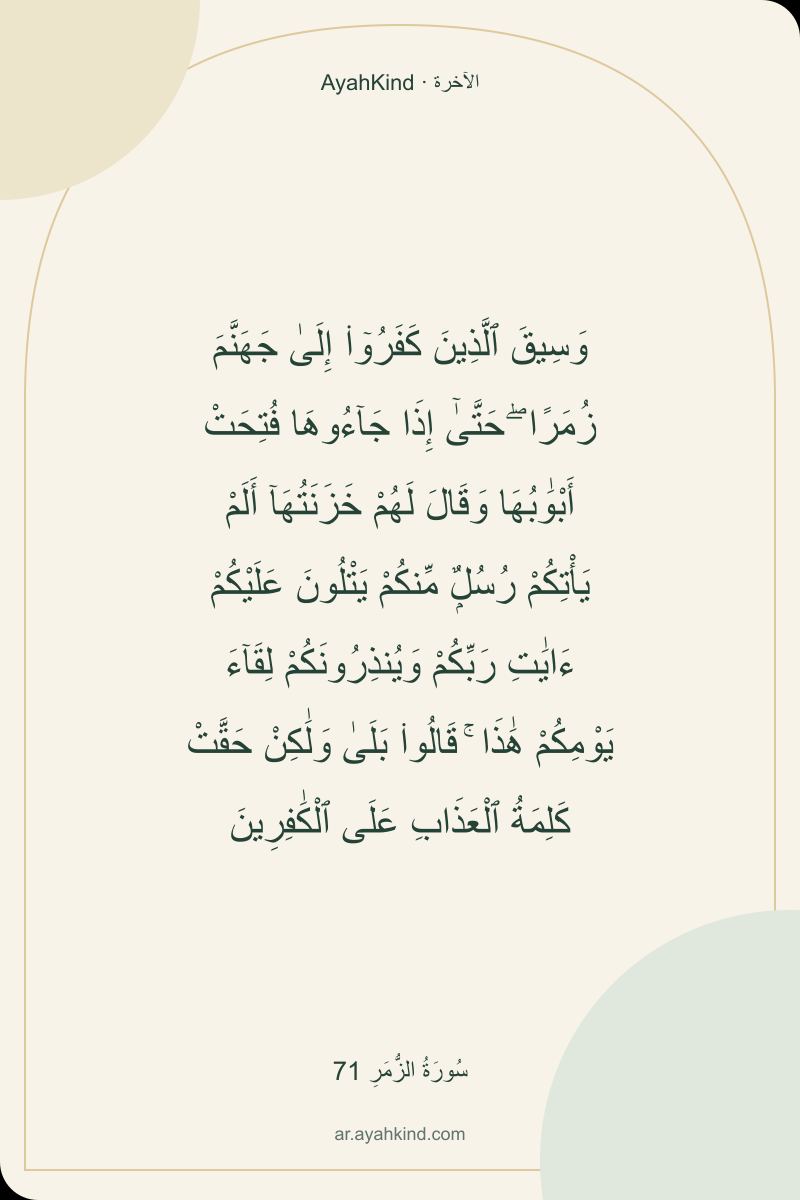 AyahKind · الآخرة
وَسِيقَ ٱلَّذِينَ كَفَرُوٓا۟ إِلَىٰ جَهَنَّمَ
زُمَرًا ۖ حَتَّىٰٓ إِذَا جَآءُوهَا فُتِحَتْ
أَبْوَٰبُهَا وَقَالَ لَهُمْ خَزَنَتُهَآ أَلَمْ
يَأْتِكُمْ رُسُلٌۭ مِّنكُمْ يَتْلُونَ عَلَيْكُمْ
ءَايَٰتِ رَبِّكُمْ وَيُنذِرُونَكُمْ لِقَآءَ
يَوْمِكُمْ هَٰذَا ۚ قَالُوا۟ بَلَىٰ وَلَٰكِنْ حَقَّتْ
كَلِمَةُ ٱلْعَذَابِ عَلَى ٱلْكَٰفِرِينَ
سُورَةُ الزُّمَرِ 71
ar.ayahkind.com